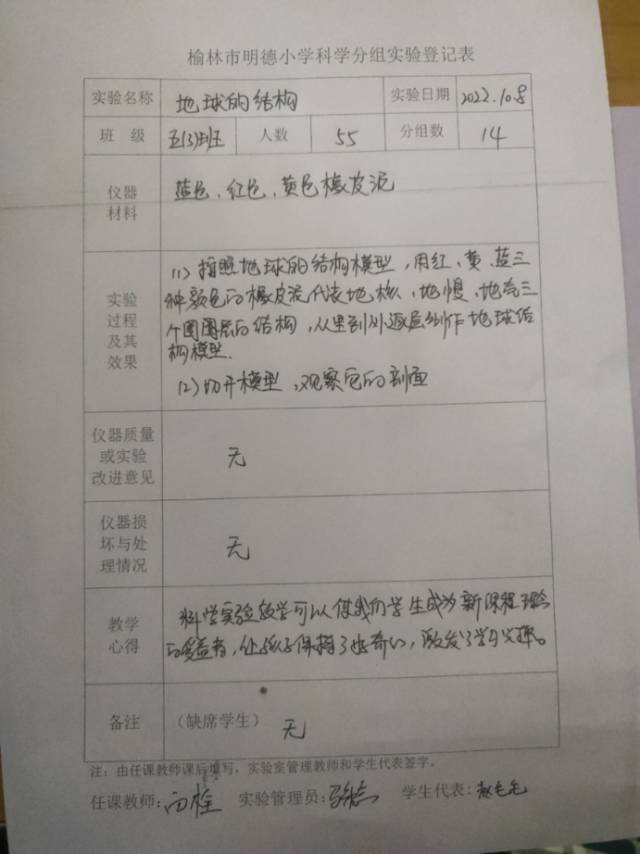 榆林市明德小学科学分组实验登记表
实验名称 地球的结构 实验日期 2022.10.8
班 级 五(3)班 人数 55 分组数 14
仪器
材料
蓝色、红色、黄色橡皮泥
实验
过程
及其
效果
(1)按照地球的结构模型,用红、黄、蓝三
种颜色的橡皮泥代表地核、地慢、地壳三
个圈层的结构,从里到外逐层制作地球结
构模型.
(2)切开模型,观察它的剖面
仪器质量
或实验
改进意见
无
仪器损
坏与处
理情况
无
教学
心得
科学实验教学可以使我们学生成为新课程理念
的受益者,让孩子保持了好奇心,激发了学习兴趣。
备注 (缺席学生) 无
注:由任课教师课后填写,实验室管理教师和学生代表签字。
任课教师: 实验管理员: 学生代表: